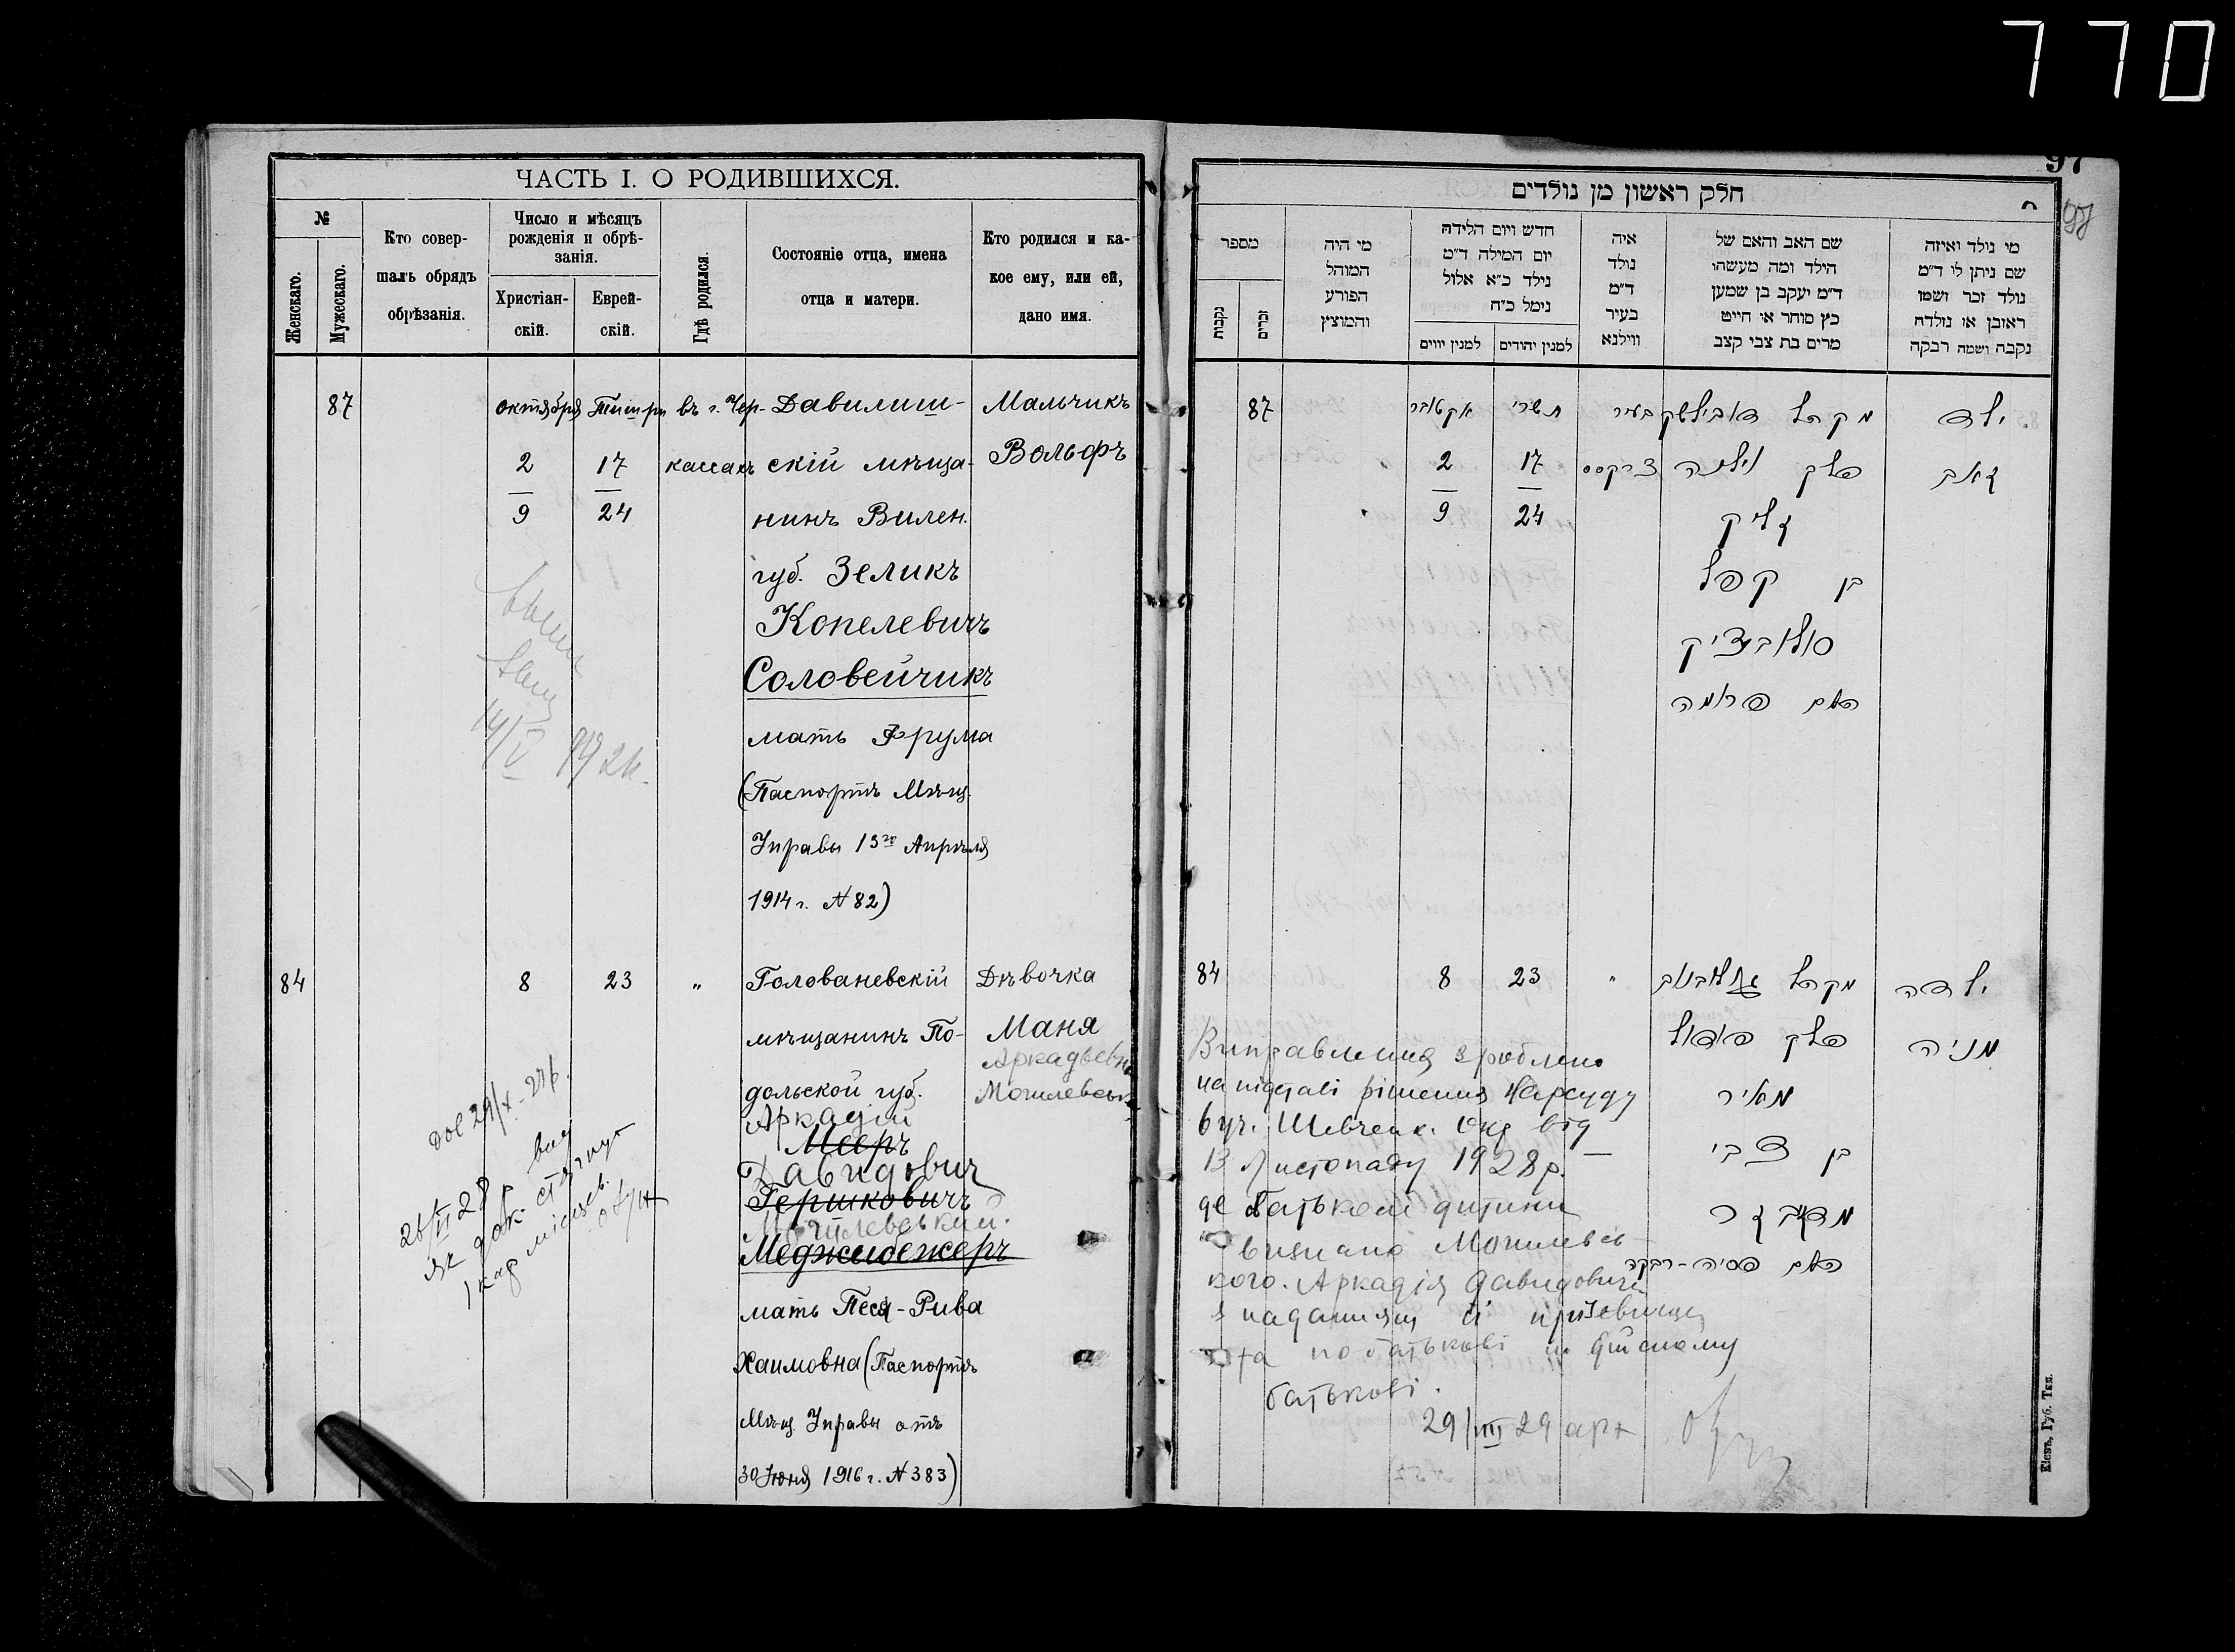 770
ЧАСТЬ I. О РОДИВШИХСЯ.
№
Женскаго.
Мужескаго.
Кто совер-
шалъ обрядъ
обрѣзанія.
Число и мѣсяцъ
рожденія и обрѣ-
занія.
Христіан-
скій.
Еврей-
скій.
Гдѣ родился.
Состояніе отца, имена
отца и матери.
Кто родился и ка-
кое ему, или ей,
дано имя.
87
октября Тишри въ г. Чер-
2 17 кассахъ
9 24
Давилиш-
скій мѣща-
нинъ Вилен.
губ. Зеликъ
Копелевичъ
Соловейчикъ
мать Фрума
(Паспортъ Мѣщ.
Управы 13го Апрѣля
1914 г. № 82)
Мальчикъ
Вольфъ
84
8 23 „
Голованевскій
мѣщанинъ По-
дольской губ.
Аркадій
Мееръ
Давидович
Гершковичъ
Могилевський.
Меджибежеръ
мать Песя-Рива
Хаимовна (Паспортъ
Мѣщ. Управы отъ
30 Июня 1916 г. № 383)
Дѣвочка
Маня
Аркадьевна
Могилевськ
97
חלק ראשון מן נולדים
מספר
נקבות
זכרים
מי היה
המוהל
הפורע
והמוצץ
חדש ויום הלידה
יום המילה ד״מ
נילד כ״א אלול
נימל כ״ח
למנין יווים
למנין יהודים
איה
נולד
ד״מ
בעיר
ווילנא
שם האב והאם של
הילד ומה מעשהו
ד״מ יעקב בן שמען
כץ סוחר או חייט
מרים בת צבי קצב
מי נולד ואיזה
שם ניתן לו ד״מ
נולד זכר ושמו
ראובן או נולדה
נקבה ושמה רבקה
87
אקטאבר תשרי בעיר
2 17 צרקסס
9 24
מקהל דאבילישק
פלך וילנה
זליק
בן קפל
סולובציק
האם פרומה
ילד
זאב
84
8 23 „
מקהל
פלך פודול
מאיר
בן צבי
האם פסיה-רבקה
ילדה
מניה
Виправлення зроблено
на підставі рішення Нарсуду
6 уч. Шевченк. Окр від
13 Листопаду 1928 р.
де батьком дитини
визнано Могилевсь-
кого. Аркадія Давидовича
з наданням ій прізвища
та по батькові по дійсному
батькові.
29/III 29
Кіевъ, Губ. Тип.